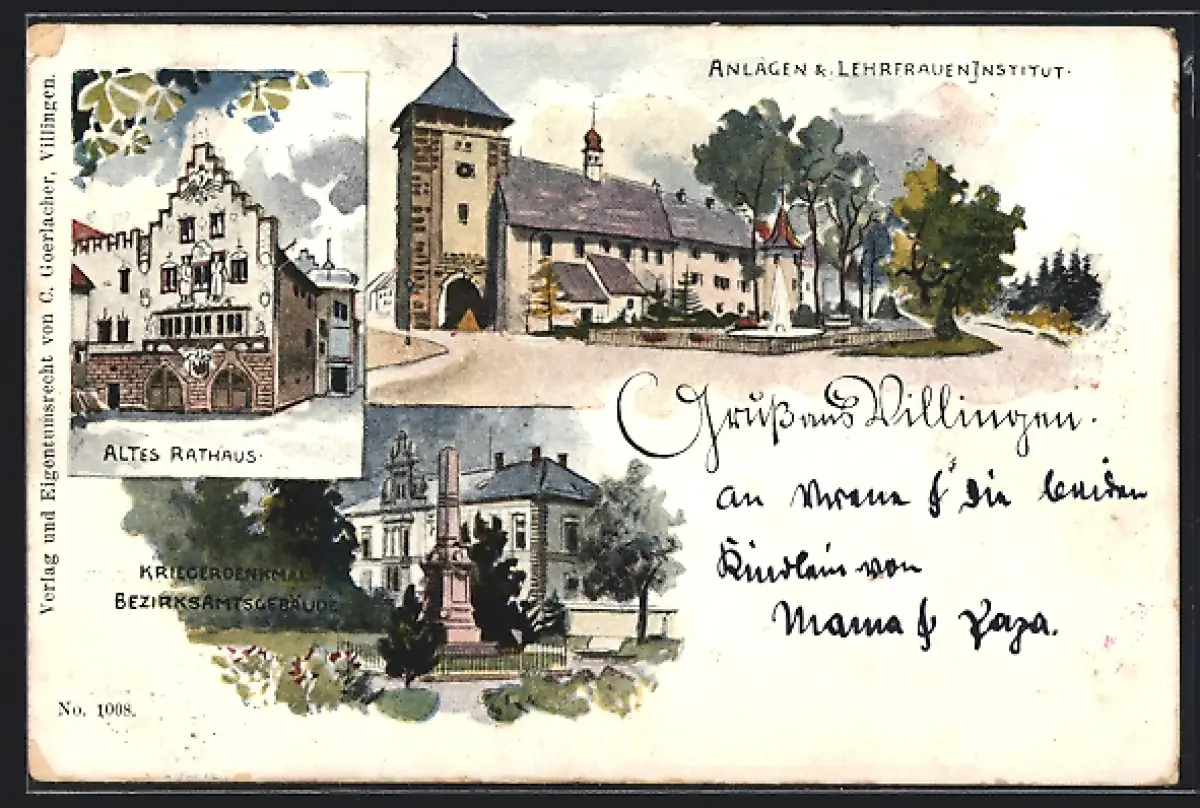 ANLAGEN & LEHRFRAUENINSTITUT.
Verlag und Eigentumsrecht von C. Goerlacher, Villingen.
ALTES RATHAUS.
Gruß aus Villingen.
an Verena & die beiden
Kindlein von
Mama & Papa.
KRIEGERDENKMAL
BEZIRKSAMTSGEBÄUDE
No. 1008.